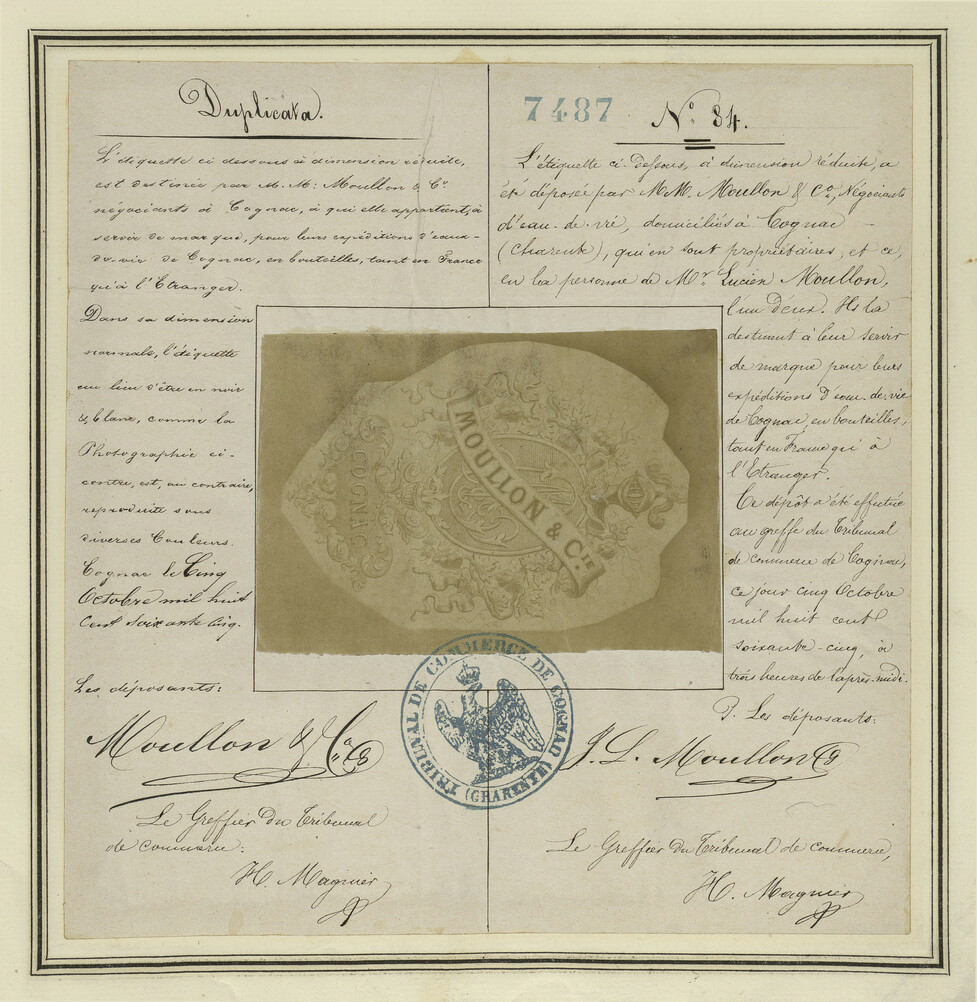 Duplicata.
L'étiquette ci dessous à dimension réduite,
est destinée par M. M: Moullon & Cie
négociants à Cognac, à qui elle appartient, à
servir de marque, pour leurs expéditions d'eaux-
de-vie de Cognac, en bouteilles, tant en France
qu'à l'Etranger.
Dans sa dimension
normale, l'étiquette
au lieu d'être en noir
& blanc, comme la
Photographie ci-
contre, est, au contraire,
reproduite sous
diverses Couleurs.
Cognac le Cinq
Octobre mil huit
Cent soixante cinq.
Les déposants:
Moullon & Cie
Le Greffier du Tribunal
de commerce:
H. Magnier
7487
No 34.
L'étiquette ci-Dessous, à dimension réduite, a
été déposée par MM. Moullon & Co, Négociants
d'eau-de-vie, domiciliés à Cognac
(Charente), qui en sont propriétaires, et ce,
en la personne de Mr Lucien Moullon,
l'un d'eux. Ils la
destinent à leur servir
de marque pour leurs
expéditions d'eau-de-vie
de Cognac, en bouteilles,
tant en France qu'à
l'Etranger.
Ce dépôt a été effectué
au greffe du Tribunal
de commerce de Cognac,
ce jour cinq Octobre
mil huit cent
soixante-cinq, à
trois heures de l'après-midi.
P. Les déposants:
J. L. Moullon
Le Greffier du Tribunal de commerce,
H. Magnier
MOULLON & CIE
COGNAC
TRIBUNAL DE COMMERCE DE COGNAC
(CHARENTE)